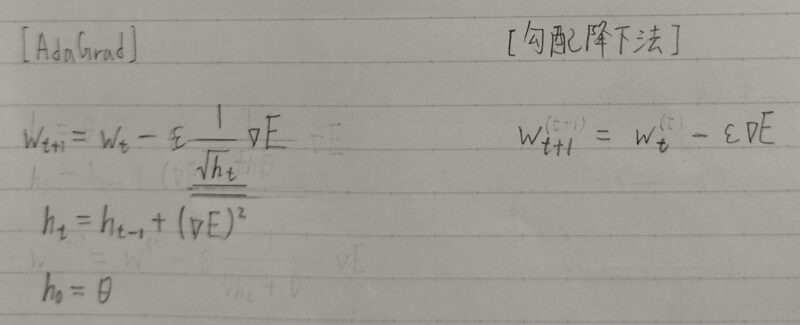 [AdaGrad]
w_{t+1} = w_t - ε \frac{1}{\sqrt{h_t}} ∇E
h_t = h_{t-1} + (∇E)^2
h_0 = θ
[勾配降下法]
w_{t+1}^{(t+1)} = w_t^{(t)} - ε∇E